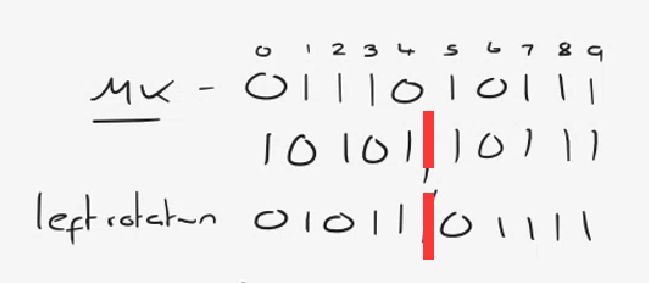 0 1 2 3 4 5 6 7 8 9
MK - 0111010111
10101,10111
left rotation 01011,01111